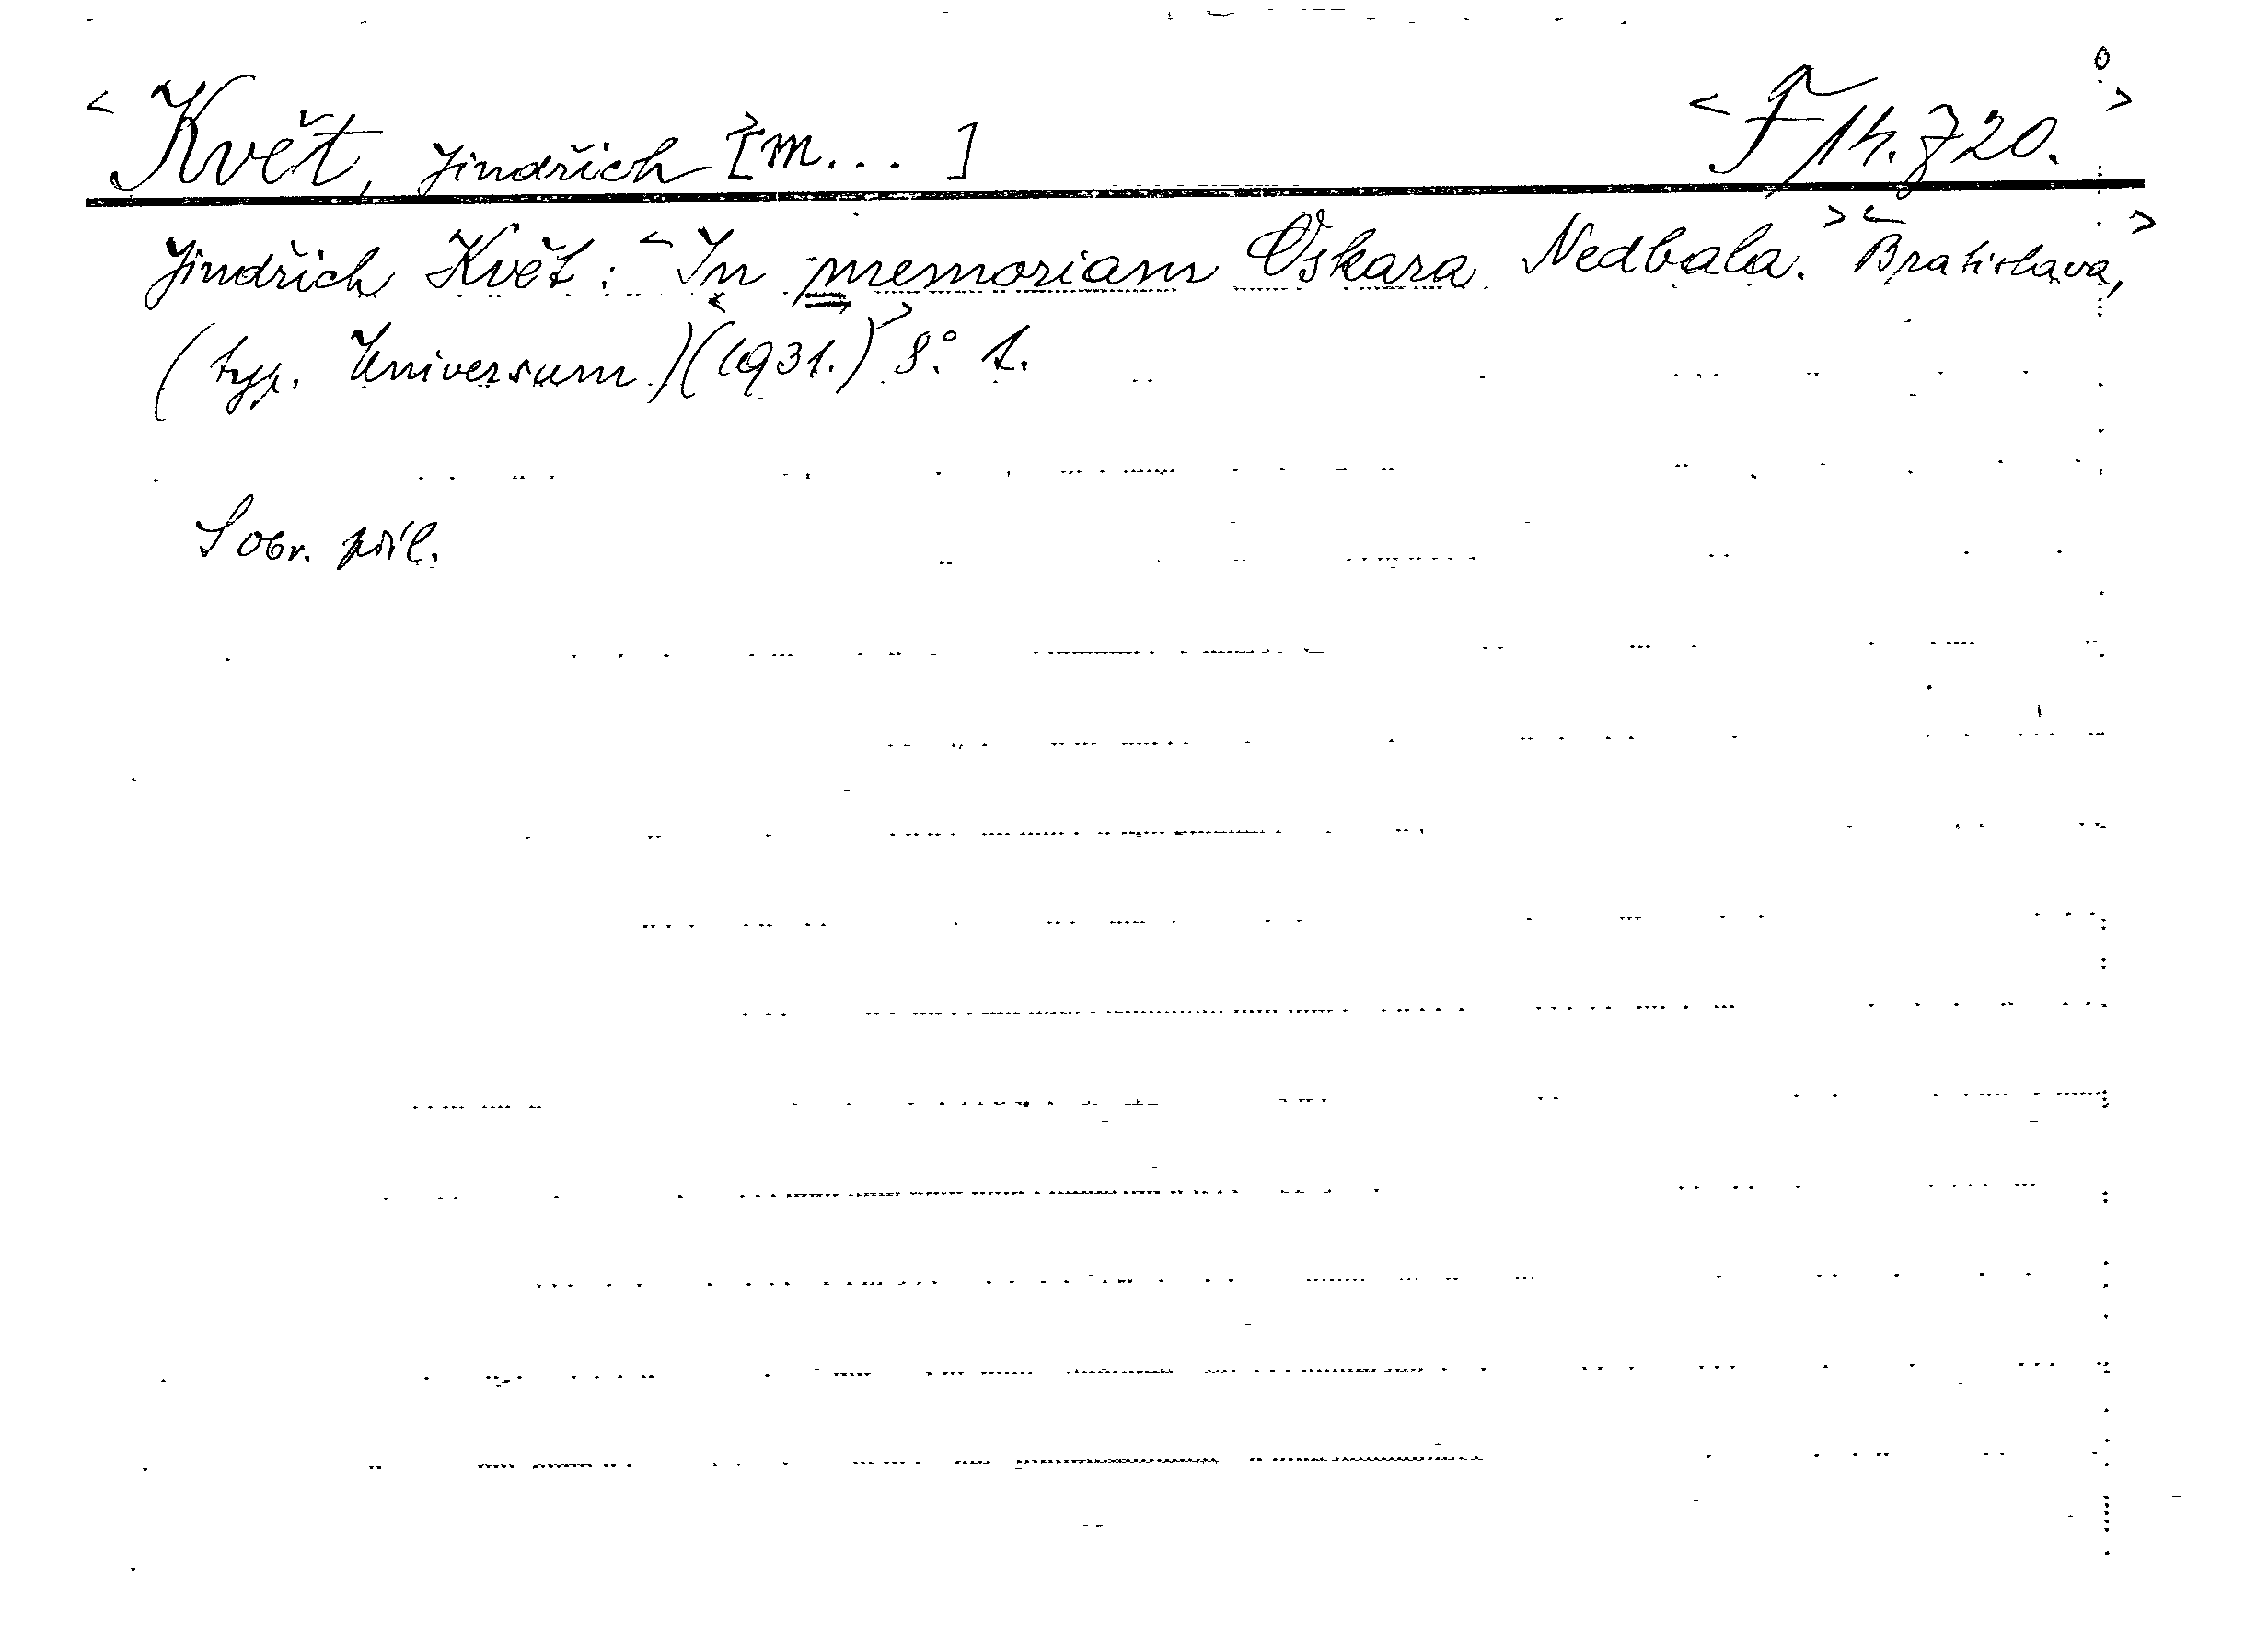 <Květ, Jindřich> [m...] <F 14.720.>
Jindřich Květ: <In memoriam Oskara Nedbala.> <Bratislava,>
(typ. Universum.) <(1931.)> 8° 1.
S obr. příl.